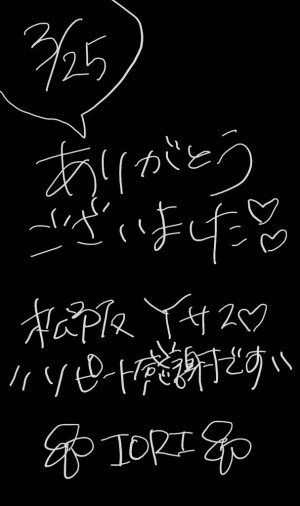 3/25
ありがとう
ございました♡♡
松阪 Yサマ♡
"リピート感謝です"
IORI